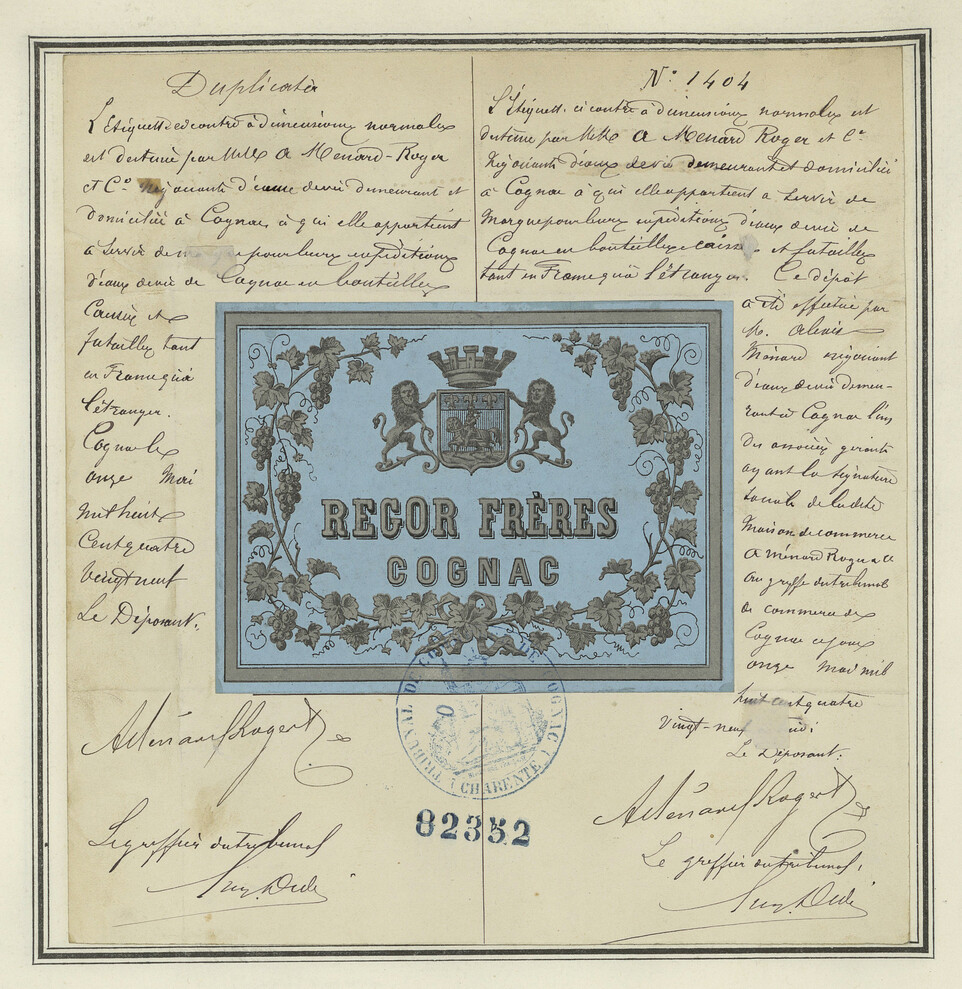 Duplicata
L'Etiquette ci contre à dimensions normales
est destinée par MM A Menard-Roger
et Cie négociants d'eaux de vie demeurant et
domiciliés à Cognac, à qui elle appartient
a servir de marque pour leurs expéditions
d'eaux de vie de Cognac en bouteilles
Caisses et
futailles tant
en France qu'à
l'étranger.
Cognac le
onze Mai
mil huit
Cent quatre
Vingt neuf
Le Déposant.
A Ménard Roger & Cie
Le greffier du tribunal
N° 1404
L'Etiquette ci contre à dimensions normales est
destinée par MM A Menard Roger et Cie
négociants d'eaux de vie demeurant et domiciliés
à Cognac à qui elle appartient a servir de
Marque pour leurs expéditions d'eaux de vie de
Cognac en bouteilles caisses et futailles
tant en France qu'à l'étranger. Ce dépôt
a été effectué par
M. Alexis
Ménard négociant
d'eaux de vie demeu-
rant à Cognac l'un
des associés gérants
ayant la signature
sociale de la dite
Maison de commerce
A Ménard Roger & Cie
au greffe du tribunal
de commerce de
Cognac ce jour
onze mai mil
huit cent quatre
Vingt-neuf
Le Déposant.
A Ménard Roger & Cie
Le greffier du tribunal,
REGOR FRÈRES
COGNAC
TRIBUNAL DE COMMERCE DE COGNAC (CHARENTE)
82352